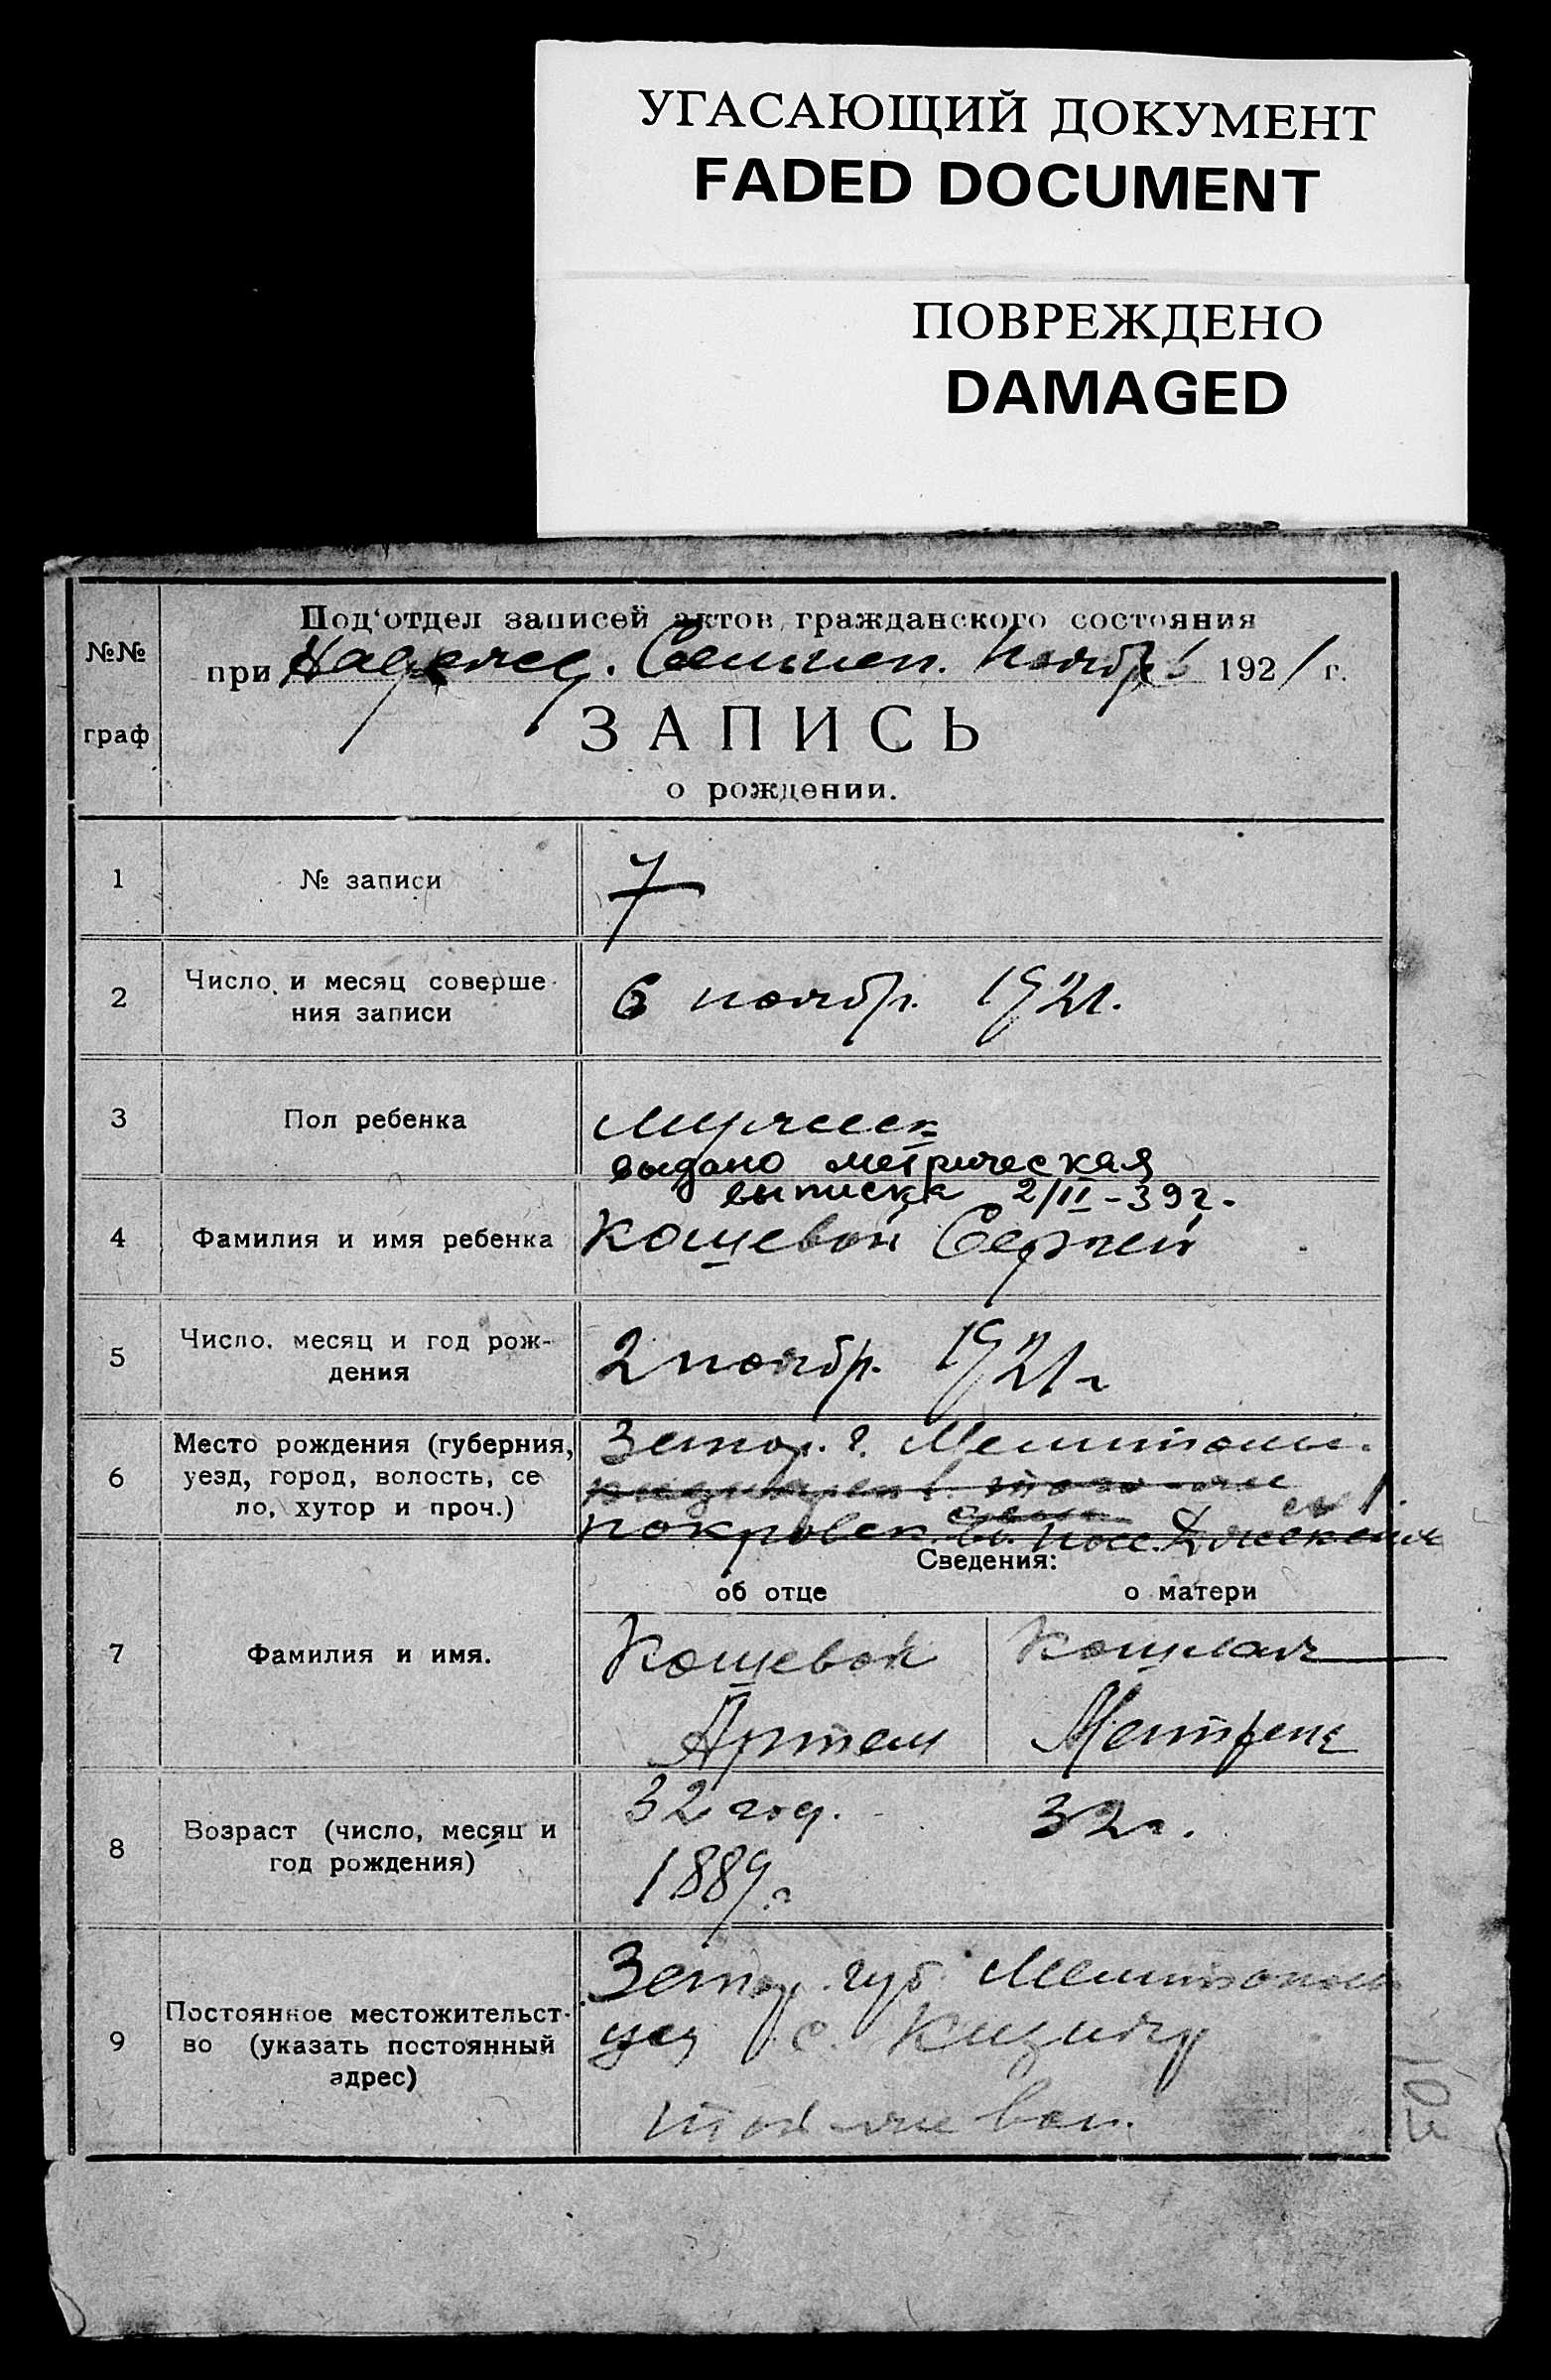 УГАСАЮЩИЙ ДОКУМЕНТ
FADED DOCUMENT
ПОВРЕЖДЕНО
DAMAGED
№№
граф
Под‘отдел записей актов гражданского состояния
при Ноябрь 1921 г.
ЗАПИСЬ
о рождении.
1 № записи 7
2 Число и месяц соверше-
ния записи
6 ноябр. 1921.
3 Пол ребенка
мужск
выдано метрическая
выписка 2/II-39г.
4 Фамилия и имя ребенка Кощевой Сергей
5 Число, месяц и год рож-
дения
2 ноябр. 1921 г
6 Место рождения (губерния,
уезд, город, волость, се
ло, хутор и проч.)
Запор. г. Мелитополь.
покровск.
Сведения:
об отце о матери
7 Фамилия и имя.
Кощевой
Артем
Матрена
8 Возраст (число, месяц и
год рождения)
32 год. 32 г.
1889 г
9 Постоянное местожительст-
во (указать постоянный
адрес)
Запор. губ. Мелитополь
уез с. Кизияр
той-же вол.